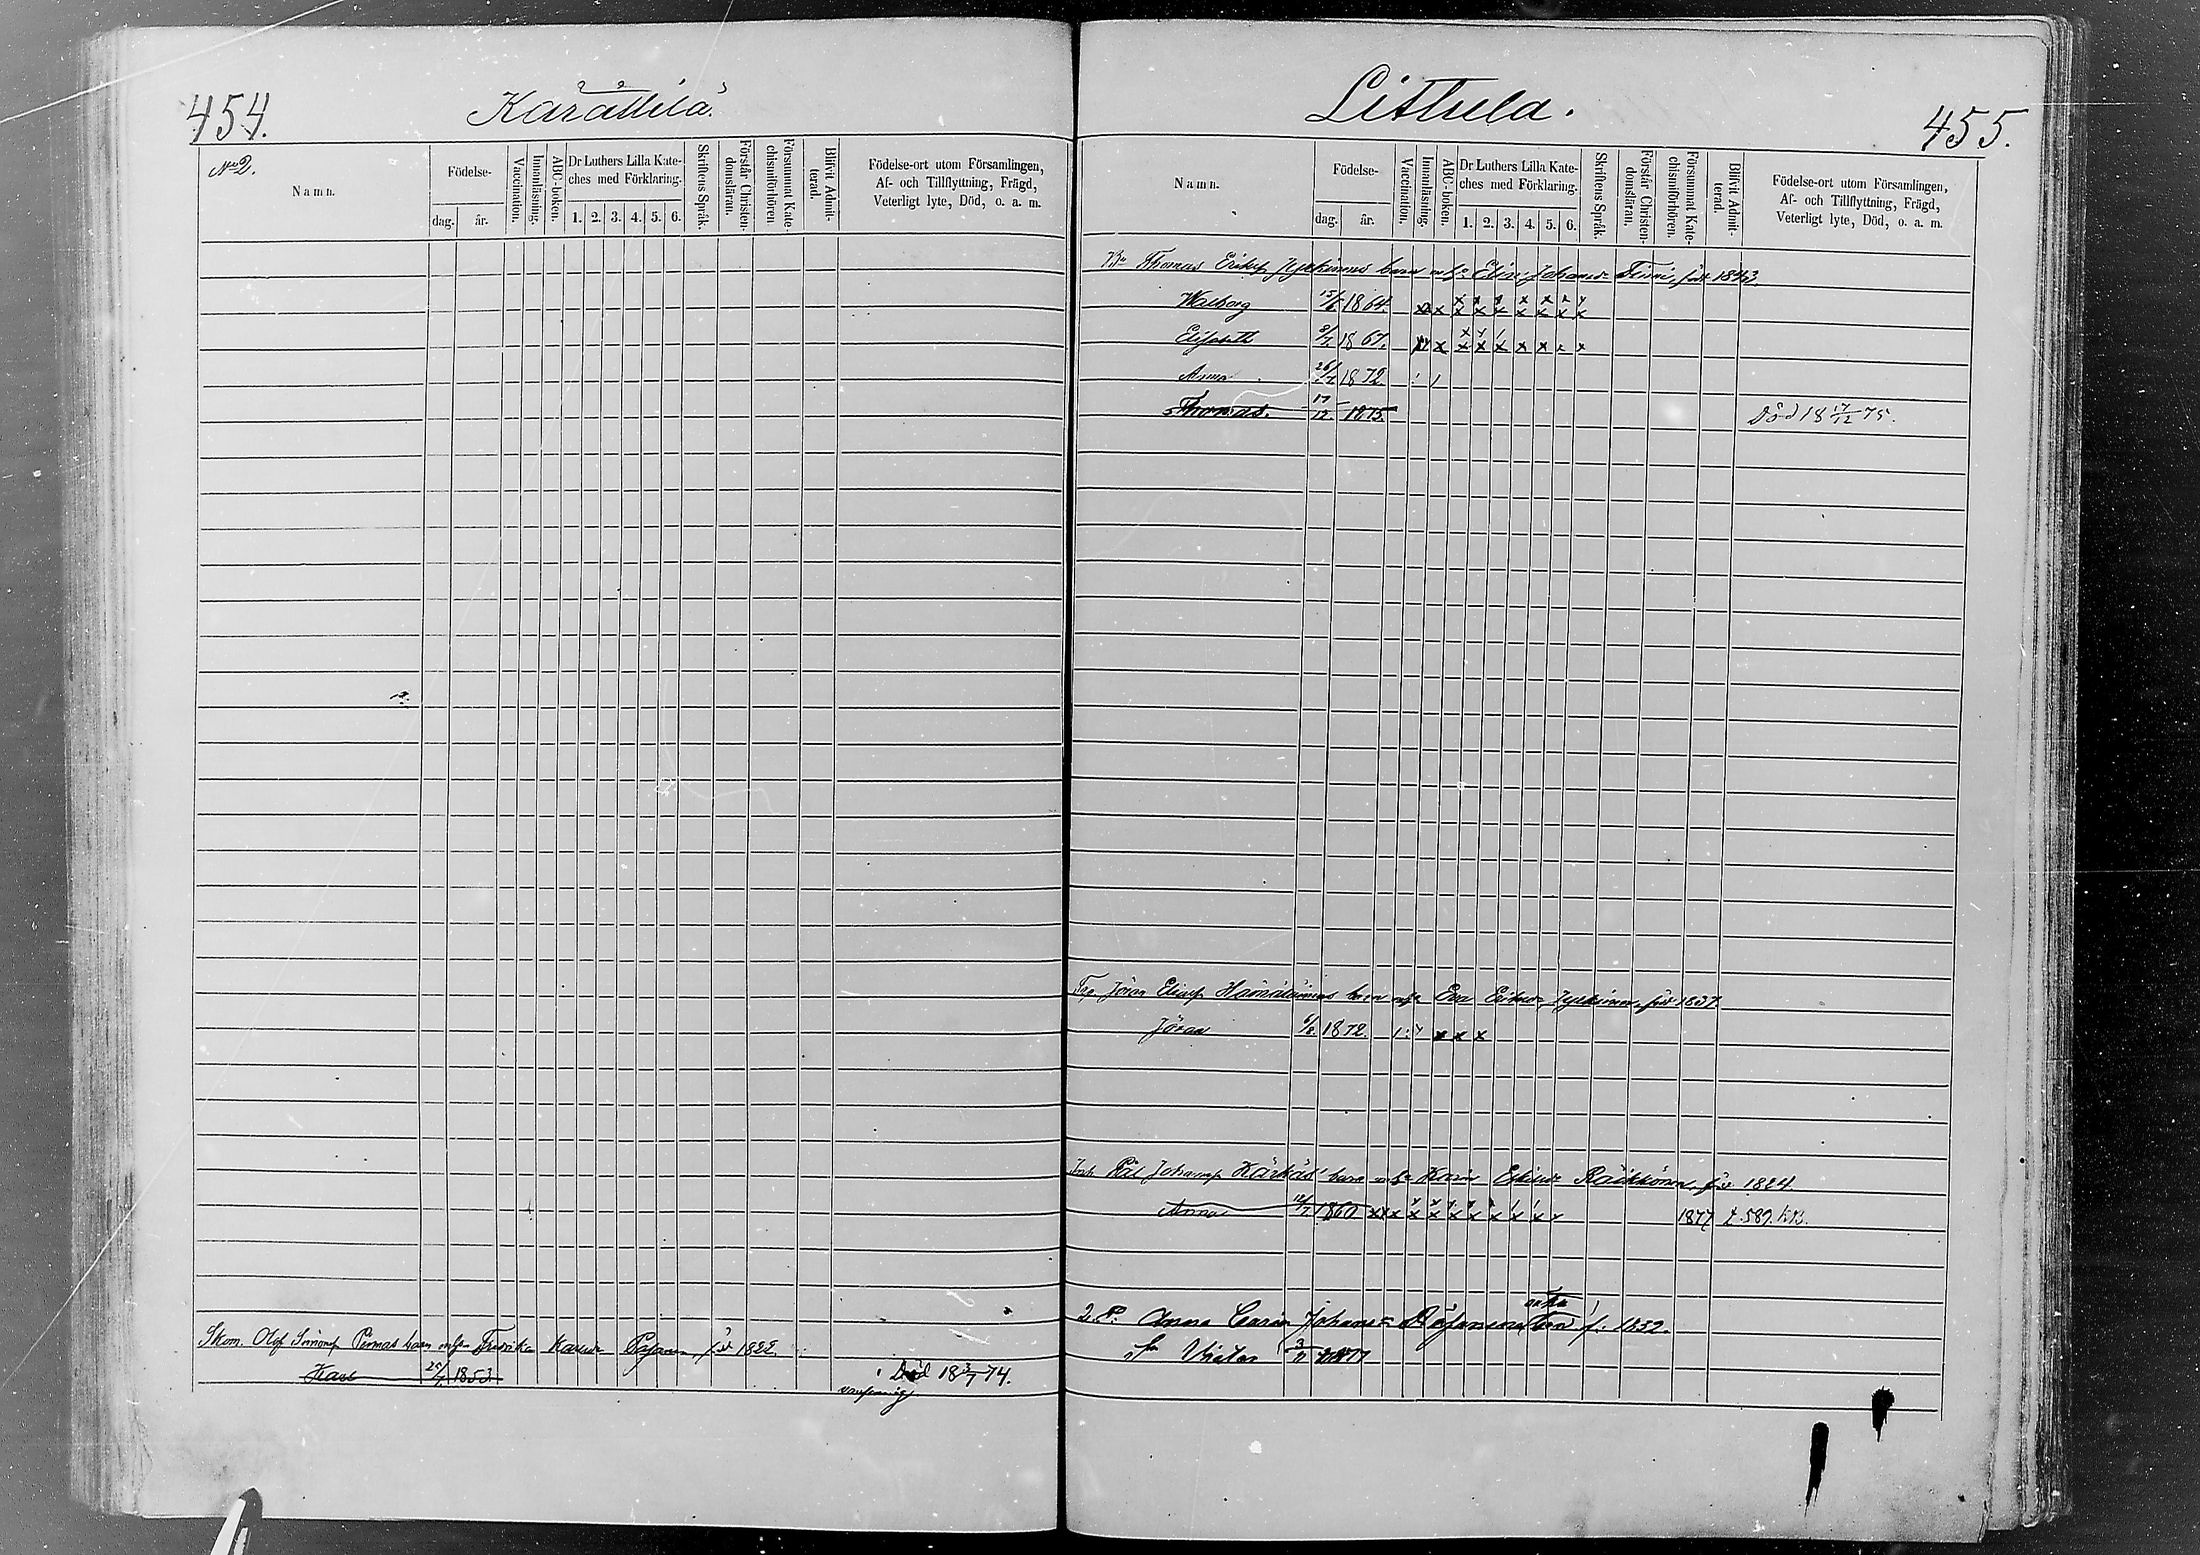 454.
Karattila
No 2.
Namn.
Födelse-
dag.
år.
Vaccination.
Innanläsning.
ABC-boken.
Dr Luthers Lilla Kate-
ches med Förklaring.
1. 2. 3. 4. 5. 6.
Skriftens Språk.
Förstår Christen-
domsläran.
Försummat Kate-
chismiförhören.
Blifvit Admit-
terad.
Födelse-ort utom Församlingen,
Af- och Tillflyttning, Frägd,
Veterligt lyte, Död, o. a. m.
Skom. Olof Simonss Pennas barn m hu Fredrika Karlsdr född 1822.
Karl 25/7 1853 Död 18 3/7 74.
Littula.
455.
Namn.
Födelse-
dag.
år.
Vaccination.
Innanläsning.
ABC-boken.
Dr Luthers Lilla Kate-
ches med Förklaring.
1. 2. 3. 4. 5. 6.
Skriftens Språk.
Förstår Christen-
domsläran.
Försummat Kate-
chismiförhören.
Blifvit Admit-
terad.
Födelse-ort utom Församlingen,
Af- och Tillflyttning, Frägd,
Veterligt lyte, Död, o. a. m.
Thomas Eriks Jyrkinens barn m hu Elin Johansdr född 1843.
Walborg 1864.
Elisabeth 1867.
Anna 1872
Thomas. 17/12 1875. Död 18 17/12 75.
Jöran Eliass Hämäläinens barn m hu Eva Eriksdr Jyrkinen, född 1837
Jöran 6/8. 1872.
Inh. Pål Johanss Kärkäs barn m hu Karin Eskilsdr Räikkönen, född 1824.
Anna 12/7 1860 1877 f. 589. k.b.
Anna Carin Johansdr enka f. 1852.
Viktor 1877